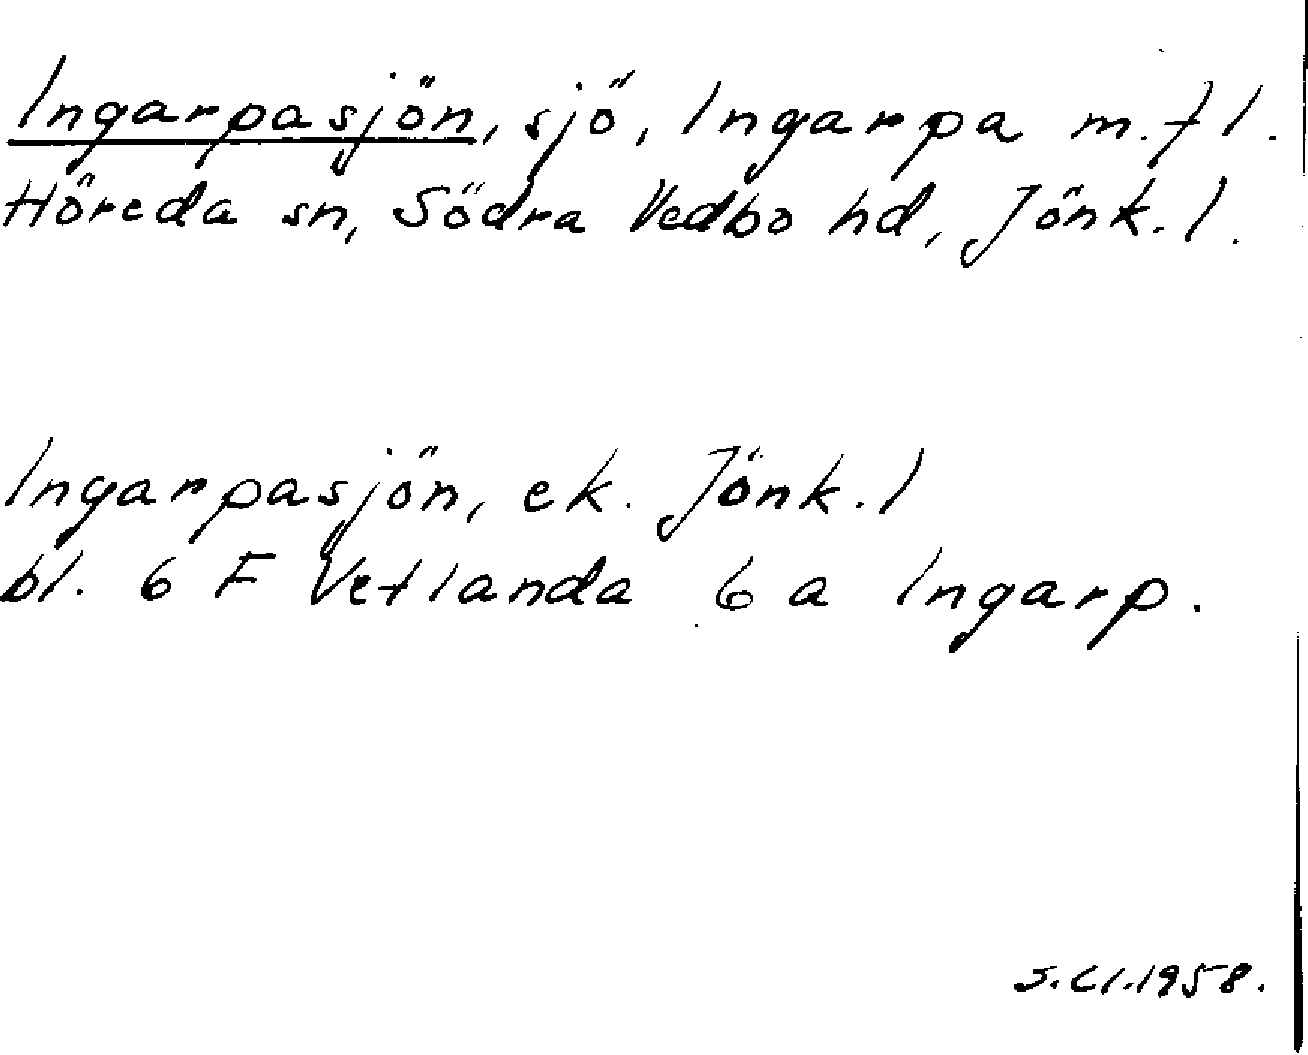 Ingarpasjön, sjö, Ingarpa m. fl.
Höreda sn, Södra Vedbo hd, Jönk. l.
Ingarpasjön, ek. Jönk. l
bl. 6 F Vetlanda 6 a Ingarp.
S. Cl. 1958.